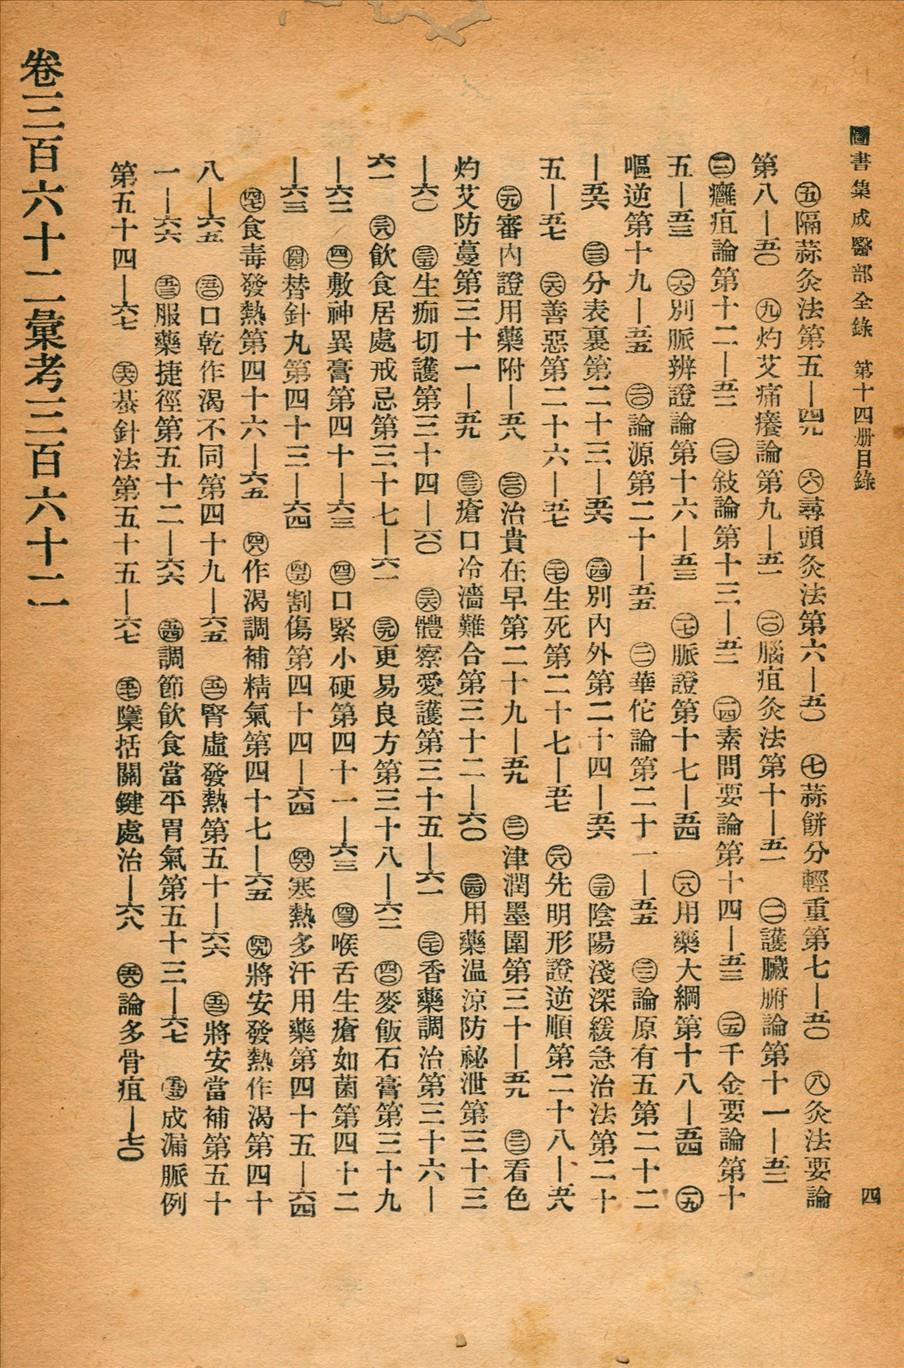 圖書集成醫部全錄　第十四册目錄　四
㊄隔蒜灸法第五—四九　㊅尋頭灸法第六—五〇　㊆蒜餅分輕重第七—五〇　㊇灸法要論
第八—五〇　㊈灼艾痛癢論第九—五一　㊉腦疽灸法第十—五一　⑪護臟腑論第十一—五二
⑫癰疽論第十二—五二　⑬敍論第十三—五二　⑭素問要論第十四—五三　⑮千金要論第十
五—五三　⑯別脈辨證論第十六—五三　⑰脈證第十七—五四　⑱用藥大綱第十八—五四　⑲
嘔逆第十九—五五　⑳論源第二十—五五　㉑華佗論第二十一—五五　㉒論原有五第二十二
—五六　㉓分表裏第二十三—五六　㉔別內外第二十四—五六　㉕陰陽淺深緩急治法第二十
五—五七　㉖善惡第二十六—五七　㉗生死第二十七—五七　㉘先明形證逆順第二十八—五八
㉙審內證用藥附—五八　㉚治貴在早第二十九—五九　㉛津潤墨圍第三十—五九　㉜看色
灼艾防蔓第三十一—五九　㉝瘡口冷濇難合第三十二—六〇　㉞用藥溫涼防祕泄第三十三
—六〇　㉟生痂切護第三十四—六〇　㊱體察愛護第三十五—六一　㊲香藥調治第三十六—
六一　㊳飲食居處戒忌第三十七—六一　㊴更易良方第三十八—六二　㊵麥飯石膏第三十九
—六二　㊶敷神異膏第四十—六三　㊷口緊小硬第四十一—六三　㊸喉舌生瘡如菌第四十二
—六三　㊹替針丸第四十三—六四　㊺割傷第四十四—六四　㊻寒熱多汗用藥第四十五—六四
㊼食毒發熱第四十六—六五　㊽作渴調補精氣第四十七—六五　㊾將安發熱作渴第四十
八—六五　㊿口乾作渴不同第四十九—六五　(五一)腎虛發熱第五十—六六　(五二)將安當補第五十
一—六六　(五三)服藥捷徑第五十二—六六　(五四)調節飲食當平胃氣第五十三—六七　(五五)成漏脈例
第五十四—六七　(五六)蜞針法第五十五—六七　(五七)櫽括關鍵處治—六八　(五八)論多骨疽—七〇
卷三百六十二彙考三百六十二